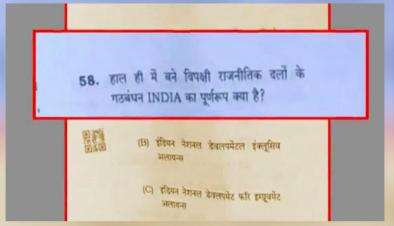 58. हाल ही में बने विपक्षी राजनीतिक दलों के
गठबंधन INDIA का पूर्णरूप क्या है?
(B) इंडियन नेशनल डेवलपमेंटल इंक्लूसिव
अलायन्स
(C) इंडियन नेशनल डेवलपमेंट फॉर इम्प्रूवमेंट
अलायन्स